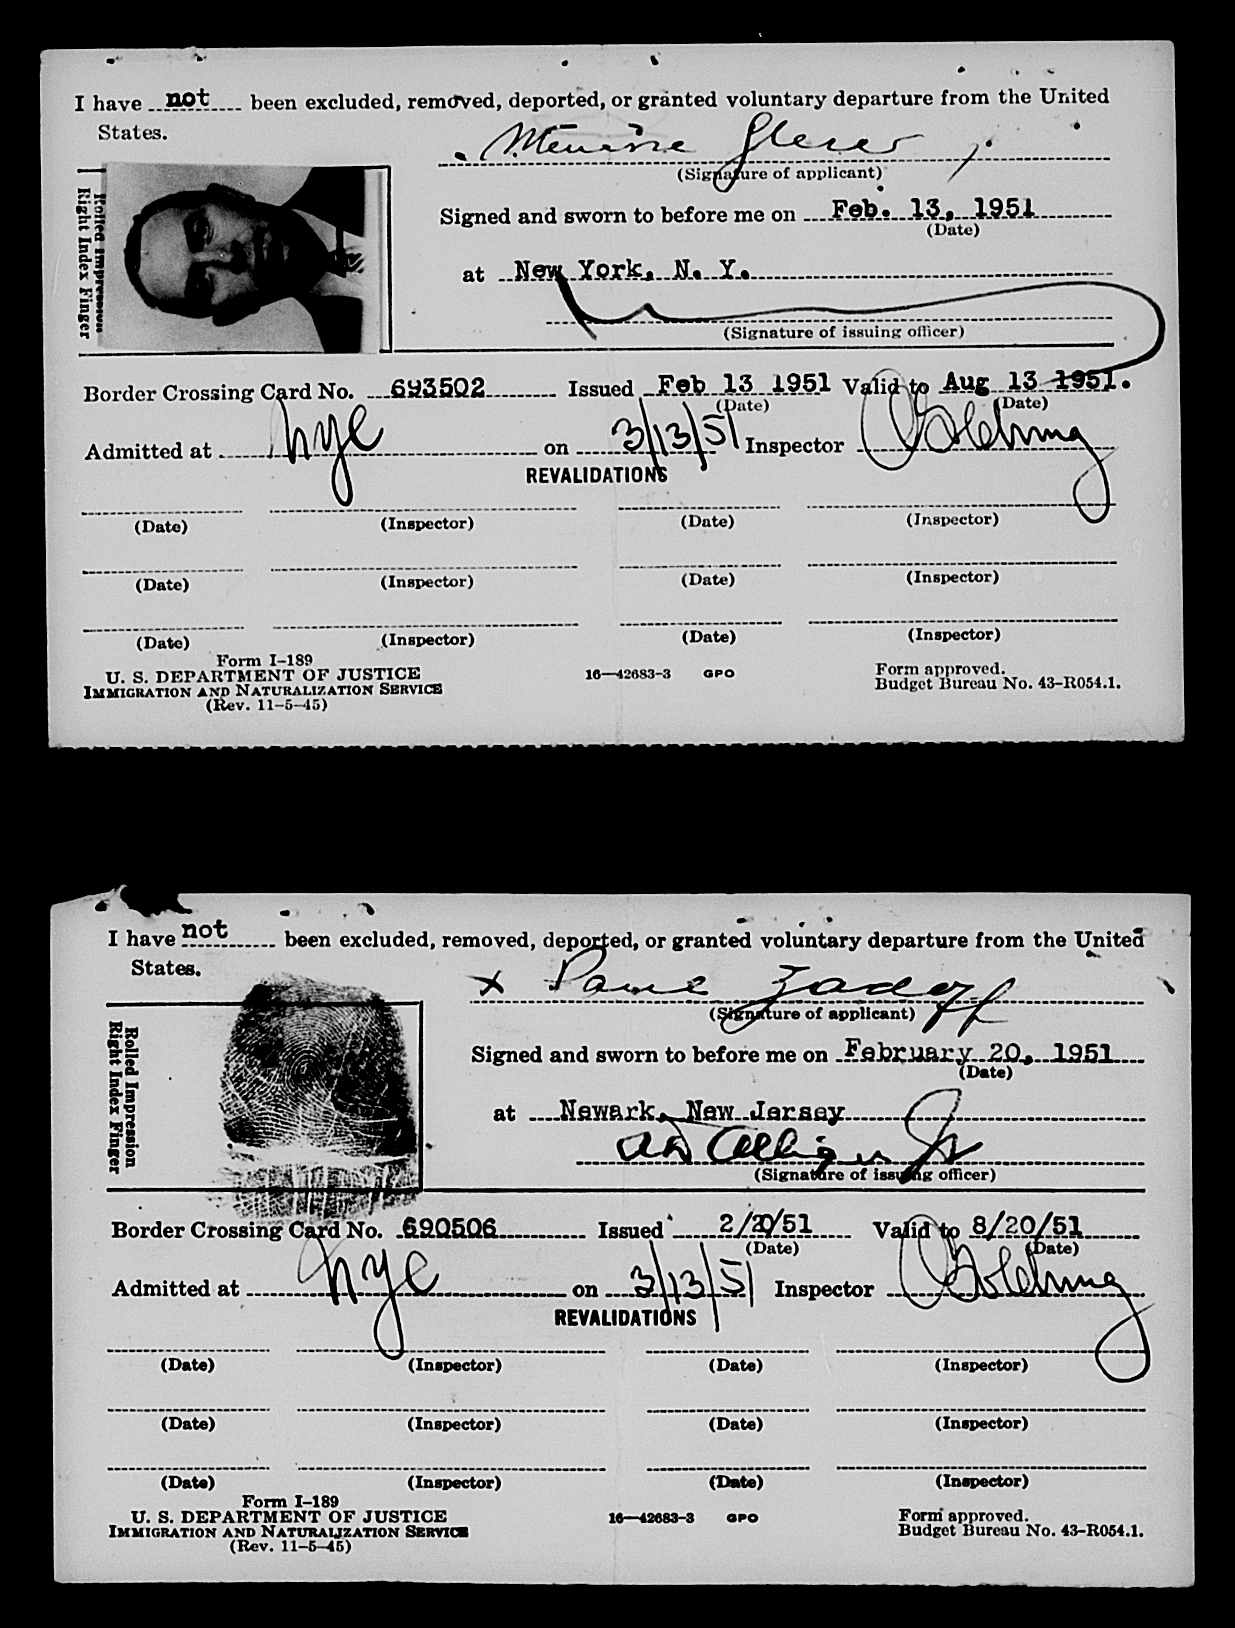 I have not been excluded, removed, deported, or granted voluntary departure from the United
States.
(Signature of applicant)
Rolled Impression
Right Index Finger
Signed and sworn to before me on Feb. 13, 1951
(Date)
at New York, N. Y.
(Signature of issuing officer)
Border Crossing Card No. 693502 Issued Feb 13 1951 Valid to Aug 13 1951.
(Date) (Date)
Admitted at nyc on 3/13/51 Inspector
REVALIDATIONS
(Date) (Inspector) (Date) (Inspector)
(Date) (Inspector) (Date) (Inspector)
(Date) (Inspector) (Date) (Inspector)
Form I-189
U. S. DEPARTMENT OF JUSTICE
IMMIGRATION AND NATURALIZATION SERVICE
(Rev. 11-5-45)
16—42683-3 GPO
Form approved.
Budget Bureau No. 43-R054.1.
I have not been excluded, removed, deported, or granted voluntary departure from the United
States.
x Zadoff
(Signature of applicant)
Rolled Impression
Right Index Finger
Signed and sworn to before me on February 20, 1951
(Date)
at Newark, New Jersey
(Signature of issuing officer)
Border Crossing Card No. 690506 Issued 2/20/51 Valid to 8/20/51
(Date) (Date)
Admitted at nyc on 3/13/51 Inspector
REVALIDATIONS
(Date) (Inspector) (Date) (Inspector)
(Date) (Inspector) (Date) (Inspector)
(Date) (Inspector) (Date) (Inspector)
Form I-189
U. S. DEPARTMENT OF JUSTICE
IMMIGRATION AND NATURALIZATION SERVICE
(Rev. 11-5-45)
16—42683-3 GPO
Form approved.
Budget Bureau No. 43-R054.1.